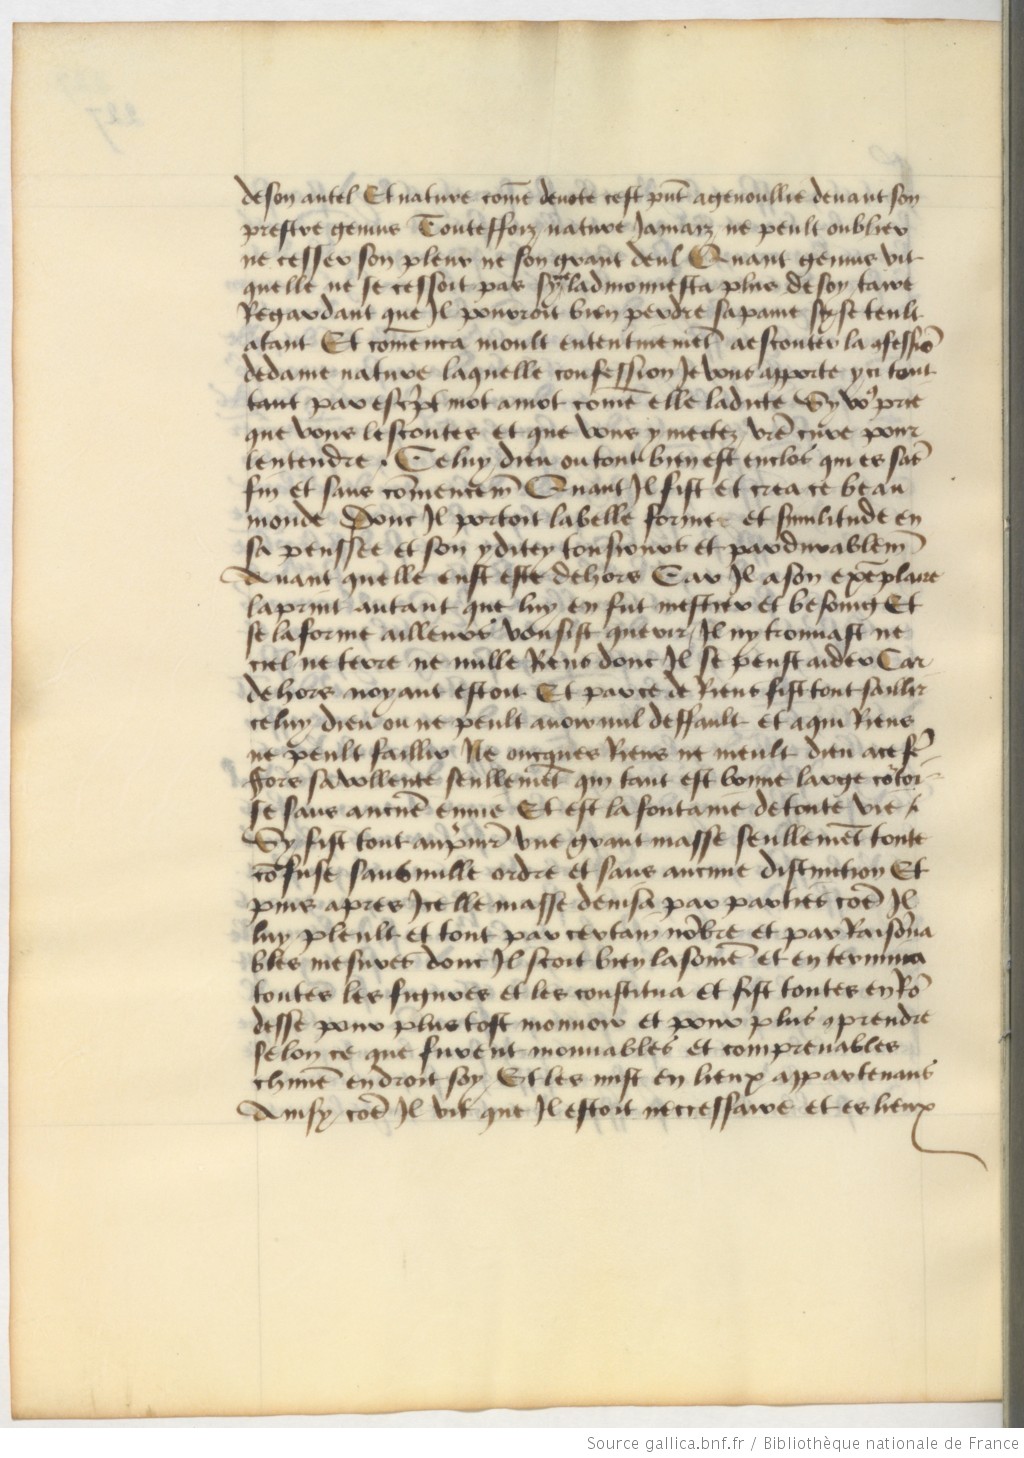 de son autel Et nature com̃e devote cest pñt agenoullie devant son
prestre genius Touteffoiz nature Jamaiz ne peult oublier
ne cesser son pleur ne son grant deul Quant genius vit
quelle ne se cessoit pas sy ladmonnesta plus de soy taire
Regardant que Il pourroit bien perdre sa paine sy se teult
atant Et com̃enca moult ententivemẽt a escouter la cõfessiõ
de dame nature laquelle confession Je vous apporte yci tout
tant par escript mot a mot com̃e elle la dicte Sy vo⁹ prie
que vous lescoutes et que vous y mectez vr̃e cure pour
lentendre . Celuy dieu ou tout bien est enclos qui es sãs
fin et sans cõmencem̃t Quant Il fist et crea ce beau
monde Donc Il portoit la belle forme et similitude en
sa penssee et son yditey tousiours et pardurablem̃t
Avant quelle eust este dehors Car Il a son exẽplaire
la print autant que luy en fut mestier et besoing Et
se la forme ailleurs voulsist querir Il ny trouvast ne
ciel ne terre ne nulle Riens donc Il se peust aider Car
dehors noyant estoit Et par ce de Riens fist tout saillir
celuy dieu ou ne peult avoir nul deffault et a qui Riens
ne peult faillir Ne oncques Riens ne meult dieu a ce fẽ
Fors sa vollente seullemẽt qui tant est bonne large cõtoi
se sans aucũe envie Et est la fontaine de toute vie
Sy fist tout au p̃mier vne grant masse seullemẽt toute
cõfuse sans nulle ordre et sans aucune distinction Et
puis apres Icelle masse devisa par parties cõe Il
luy pleult et tout par certain nõbre et par Raisõna
bles mesures donc Il scoit bien la som̃e et en termina
toutes les figures et les constitua et fist toutes en Rõ
desse pour plus tost mouvoir et pour plus aprendre
selon ce que furent mouvables et comprenables
chũne endroit soy Et les mist en lieux appartenans
Ainsy cõe Il vit que Il estoit necressaire et es lieux
Source gallica.bnf.fr / Bibliothèque nationale de France